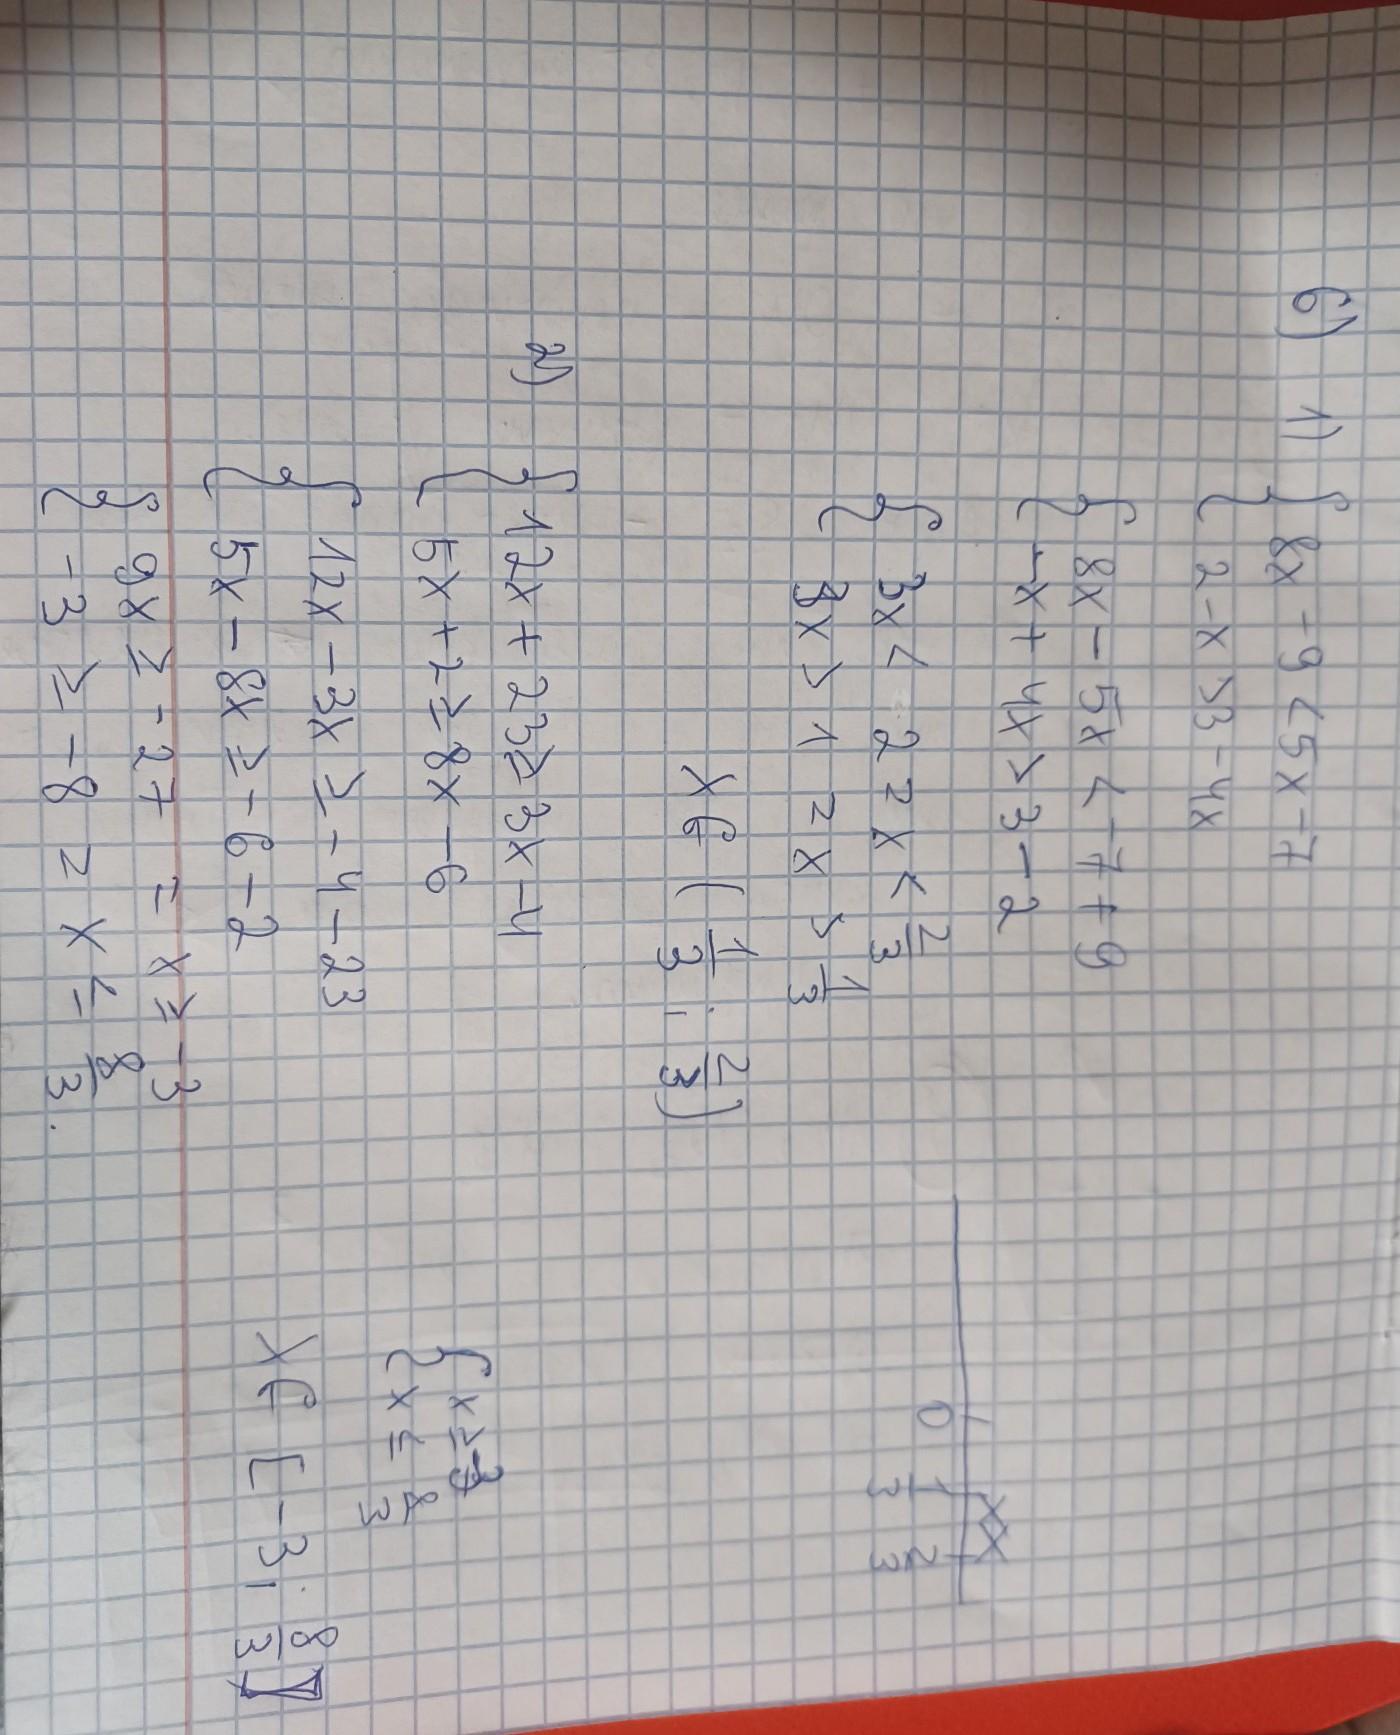 6) 1) { 8x - 9 < 5x - 7
2 - x > 3 - 4x
{ 8x - 5x < -7 + 9
-x + 4x > 3 - 2
{ 3x < 2 = x < 2/3
3x > 1 = x > 1/3
0 1/3 2/3
x ∈ (1/3 ; 2/3)
2) { 12x + 23 ≥ 3x - 4
5x + 2 ≥ 8x - 6
{ 12x - 3x ≥ -4 - 23
5x - 8x ≥ -6 - 2
{ 9x ≥ -27 = x ≥ -3
-3 ≥ -8 = x ≤ 8/3.
{ x ≥ -3
x ≤ 8/3
x ∈ [-3 ; 8/3]